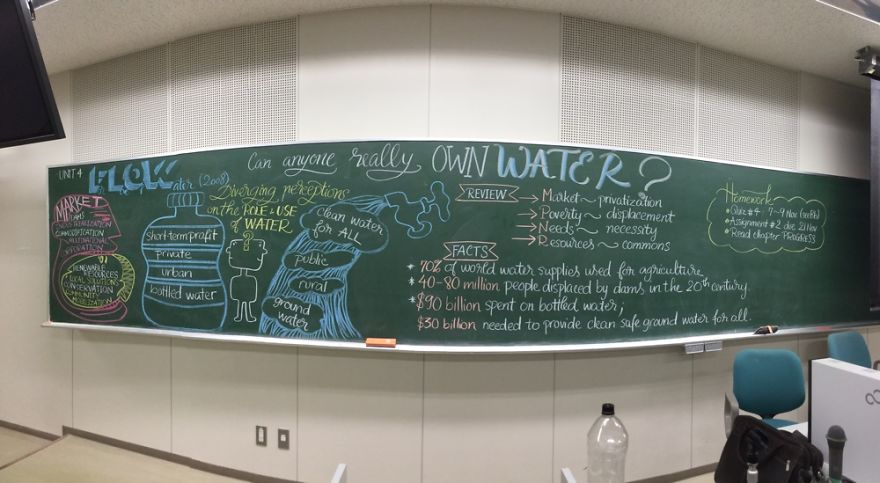 UNIT 4
FLOW
water (2008)
Can anyone really OWN WATER?
MARKET
DAMS
INDUSTRIALIZATION
COMMODIFICATION
MULTINATIONAL
CORPORATION
RENEWABLE
RESOURCES
LOCAL SOLUTIONS
CONSERVATION
COMMUNITY
MOBILIZATION
short-term profit
private
urban
bottled water
Diverging perceptions
on the ROLE & USE
of WATER
?
clean water
for ALL
public
rural
ground
water
REVIEW
→ Market ~ privatization
→ Poverty ~ displacement
→ Needs ~ necessity
→ Resources ~ commons
FACTS
* 70% of world water supplies used for agriculture
* 40-80 million people displaced by dams in the 20th century
* $90 billion spent on bottled water;
$30 billion needed to provide clean safe ground water for all.
Homework
• Quiz #4 7-9 Nov
• Assignment #2 due 21 Nov
• Read chapter PROGRESS